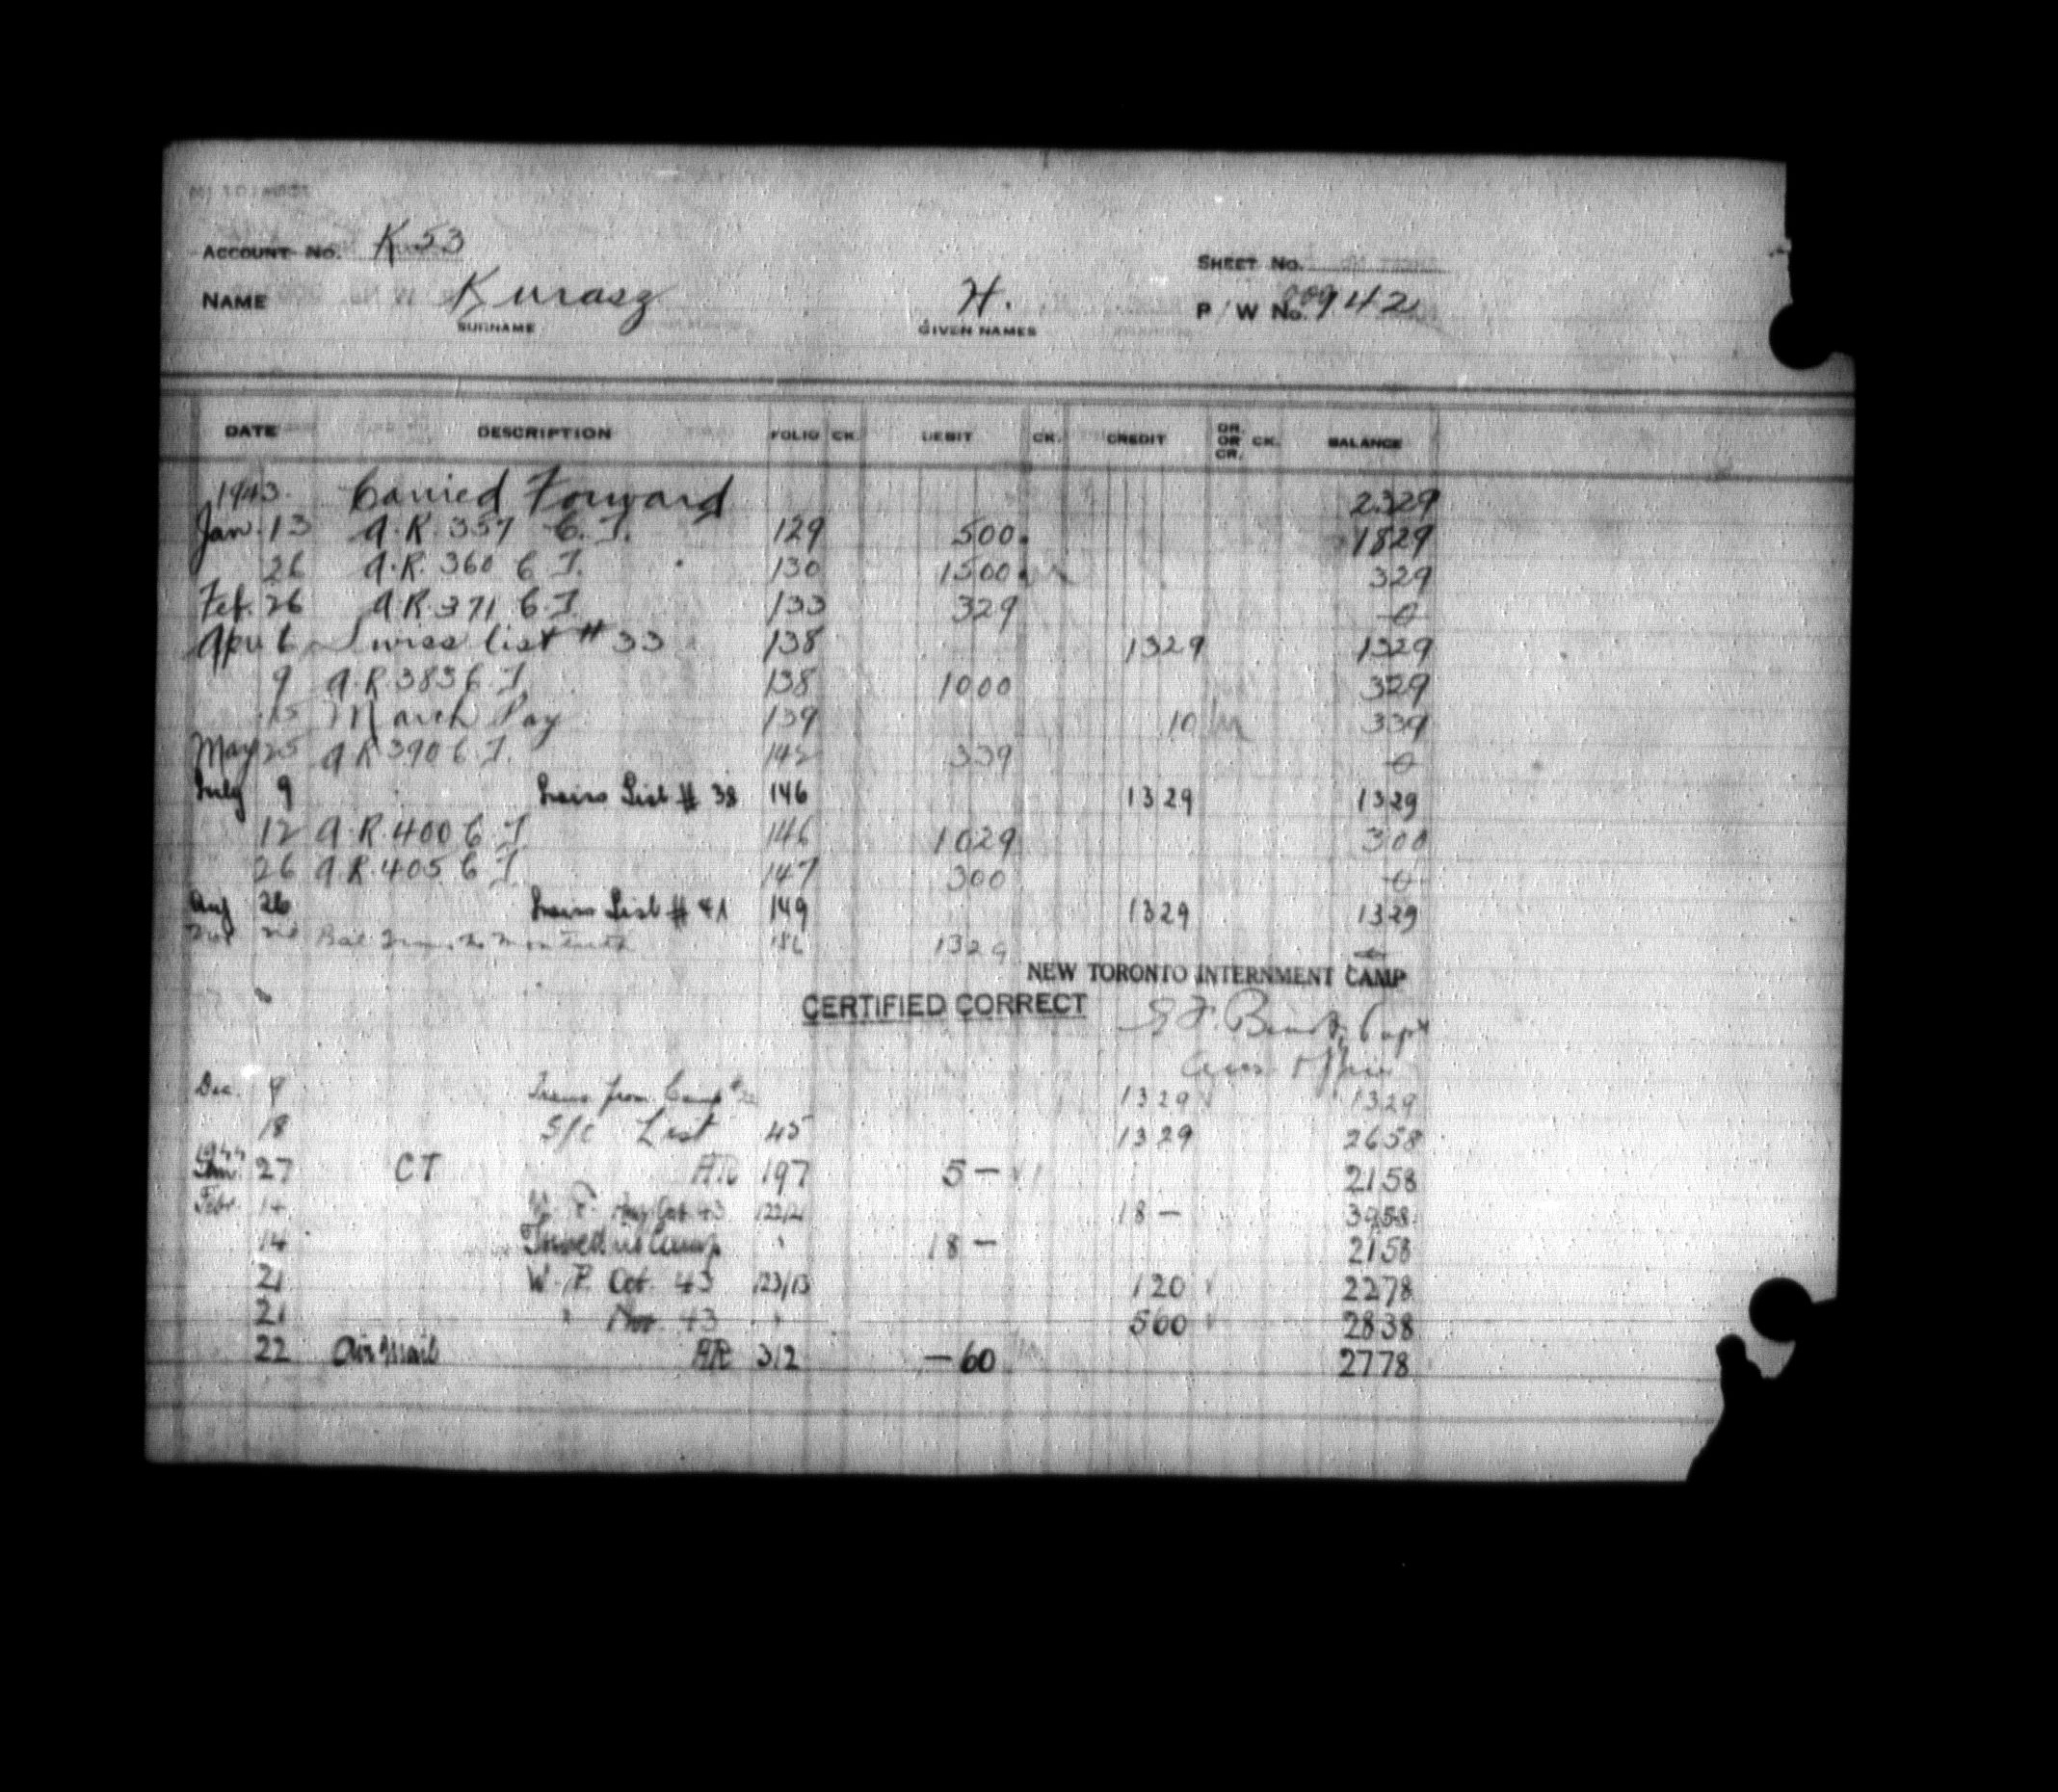 ACCOUNT NO. K53
SHEET NO.
NAME Kurasz H. P/W No. 00942
SURNAME GIVEN NAMES
DATE DESCRIPTION FOLIO CK. DEBIT CK. CREDIT DR. OR CR. CK. BALANCE
1943. Carried Forward 2329
Jan. 13 A.R. 357 C.T. 129 500. 1829
26 A.R. 360 C.T. 130 1500 329
Feb. 26 A.R. 371 C.T. 133 329 0
Apr 6 Swiss list # 33 138 1329 1329
9 A.R. 383 C.T. 138 1000 329
15 March Pay 139 10 339
May 25 A.R 390 C.T. 142 339 0
July 9 Swiss List # 38 146 1329 1329
12 A.R. 400 C.T 146 1029 300
26 A.R. 405 C.T. 147 300 0
Aug 26 Swiss List # 41 149 1329 1329
Nov Bal 1329
NEW TORONTO INTERNMENT CAMP
CERTIFIED CORRECT
Capt
Dec. 9 Trans from Camp 1329 1329
18 S/C List 45 1329 2658
1944
Jan. 27 CT AR 197 5 — 2158
Febr. 14 18 — 3958
14 in Camp 18 — 2158
21 W.P. Oct. 43 123/13 120 2278
21 " Nov. 43 " 560 2838
22 Air Mail AR 312 — 60 2778